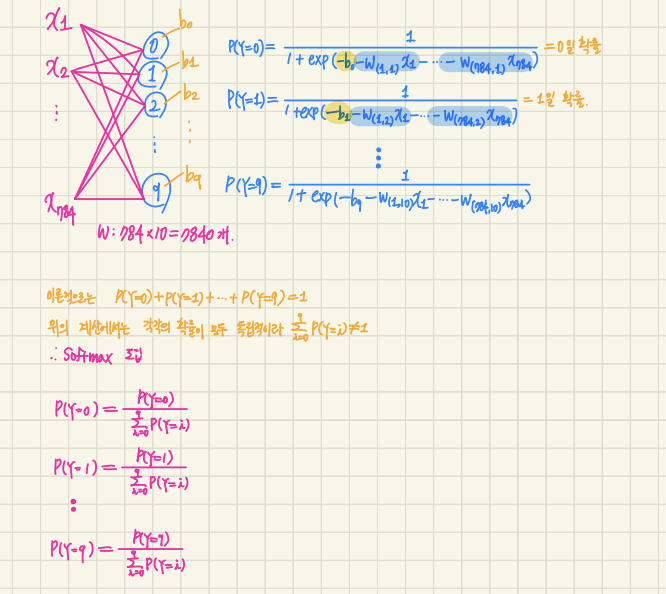 x₁
x₂
⋮
x₇₈₄
0 b₀
1 b₁
2 b₂
⋮ ⋮
9 b₉
W : 784 × 10 = 7840 개.
P(Y=0) = 1 / (1 + exp(-b₀ - W(1,1) x₁ - ⋯ - W(784,1) x₇₈₄)) = 0일 확률
P(Y=1) = 1 / (1 + exp(-b₁ - W(1,2) x₁ - ⋯ - W(784,2) x₇₈₄)) = 1일 확률.
⋮
P(Y=9) = 1 / (1 + exp(-b₉ - W(1,10) x₁ - ⋯ - W(784,10) x₇₈₄))
이론적으로는 P(Y=0) + P(Y=1) + ⋯ + P(Y=9) = 1
위의 계산에서는 각각의 확률이 모두 독립적이라 Σ_{i=0}^{9} P(Y=i) ≠ 1
∴ Softmax 도입
P(Y=0) = P(Y=0) / Σ_{i=0}^{9} P(Y=i)
P(Y=1) = P(Y=1) / Σ_{i=0}^{9} P(Y=i)
⋮
P(Y=9) = P(Y=9) / Σ_{i=0}^{9} P(Y=i)